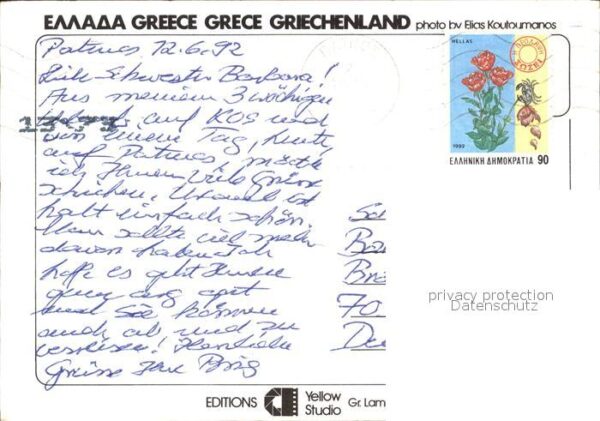 ΕΛΛΑΔΑ GREECE GRECE GRIECHENLAND photo by Elias Koutoumanos
HELLAS
1992
ΕΛΛΗΝΙΚΗ ΔΗΜΟΚΡΑΤΙΑ 90
Patmos 12.6.92
Liebe Schwester Barbara!
Aus meinem 3 wöchigen
auf KOS und
von einem Tag, heute,
auf Patmos, möchte
ich Ihnen viele Grüsse
schicken, Urlaub ist
halt einfach schön.
Man sollte viel mehr
davon haben. Ich
hoffe es geht Ihnen
ganz arg gut
und Sie können
auch ab und zu
verreisen! Herzliche
Grüsse Ihre
70
privacy protection
Datenschutz
EDITIONS Yellow Studio Gr. Lam